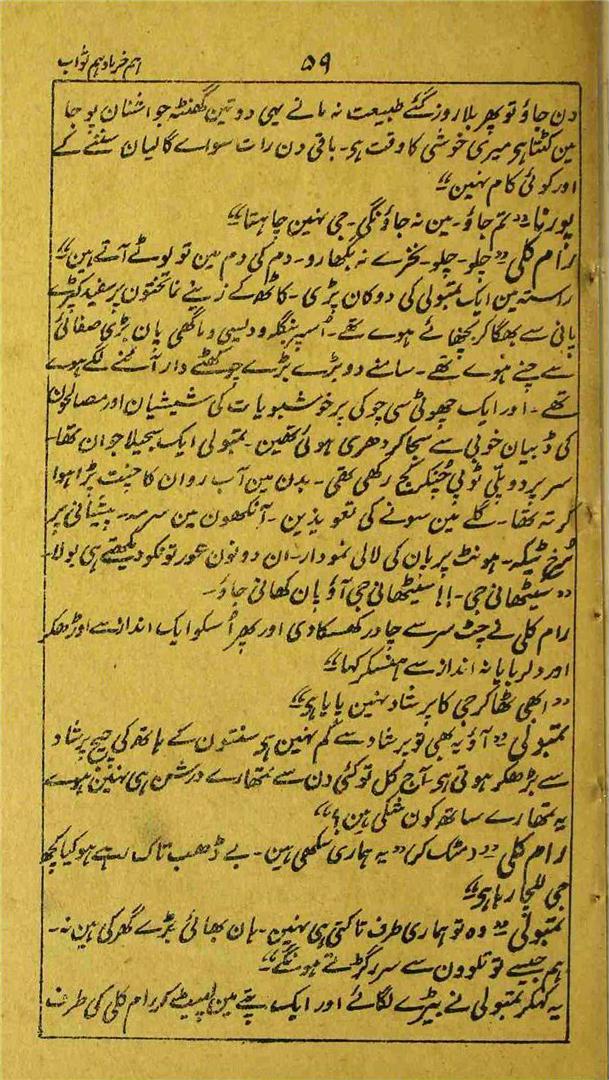 ہم خرما و ہم ثواب
۵۹
دن جاؤ تو پھر بلا روز گئے طبیعت نہ مانے یہی دو تین گھنٹہ جو اشنان پوجا
مین کٹتا ہی میری خوشی کا وقت ہی۔ باقی دن رات سواے گالیان سننے کے
اور کوئی کام نہین“
پورنا ”تم جاؤ۔ مین نہ جاؤنگی۔ جی نہین چاہتا“
رام کلی ”چلو۔ چلو۔ نخرے نہ بگھارو۔ دم کی دم مین تو لوٹے آتے ہین“
راستہ مین ایک تمبولی کی دوکان پڑی۔ کاٹھ کے زینے نما تختون پر سفید کپڑے
پانی سے بھگا کر بچھائے ہوے تھے۔ اُسپر بنگلہ و دلیسی و ماگھی پان بڑی صفائی
سے چنے ہوے تھے۔ سامنے دو بڑے بڑے چوکھٹے دار آئنے لگے ہوے
تھے۔ اور ایک چھوٹی سی چوکی پر خوشبویات کی شیشیان اور مصالحون
کی ڈبیان خوبی سے سجا کر دھری ہوئی تھین۔ تمبولی ایک سجیلا جوان تھا۔
سر پر دوپلّی ٹوپی چُنکر کج رکھی تھی۔ بدن مین آب روان کا چنت پڑا ہوا
کرتہ تھا۔ گلے مین سونے کی تعویذین۔ آنکھون مین سرمہ۔ پیشانی پر
سُرخ ٹیکہ۔ ہونٹ پر پان کی لالی نمودار۔ ان دونون عورتونکو دیکھتے ہی بولا۔
”سیٹھانی جی۔!! سیٹھانی جی آؤ پان کھاتی جاؤ۔
رام کلی نے چٹ سر سے چادر کھسکا دی اور پھر اُسکو ایک انداز سے اوڑھکر
اور دلربایانہ انداز سے ہنسکر کہا“
”ابھی ٹھاکر جی کا پرشاد نہین پایا ہی“
تمبولی ”آؤ یہ بھی تو پرشاد سے کم نہین ہی سنتون کے ہاتھ کی چیج پرشاد
سے بڑھکر ہوتی ہی۔ آج کل تو کئی دن سے تمھارے درشن ہی نہین ہوے
یہ تمھارے ساتھ کون سکھی ہین؟“
رام کلی ”دمٹک کر“ یہ ہماری سکھی ہین۔ بے ڈھب تاک رہے ہو کیا کچھ
جی للچا رہا ہی“
تمبولی ”وہ تو ہماری طرف تاکتی ہی نہین۔ ہان بھائی بڑے گھر کی ہین نہ۔
ہم جیسے تو تلوون سے سر رگڑتے ہونگے“
یہ کہکر تمبولی نے بیڑے لگائے اور ایک پتّے مین لپیٹ کر رام کلی کی طرف